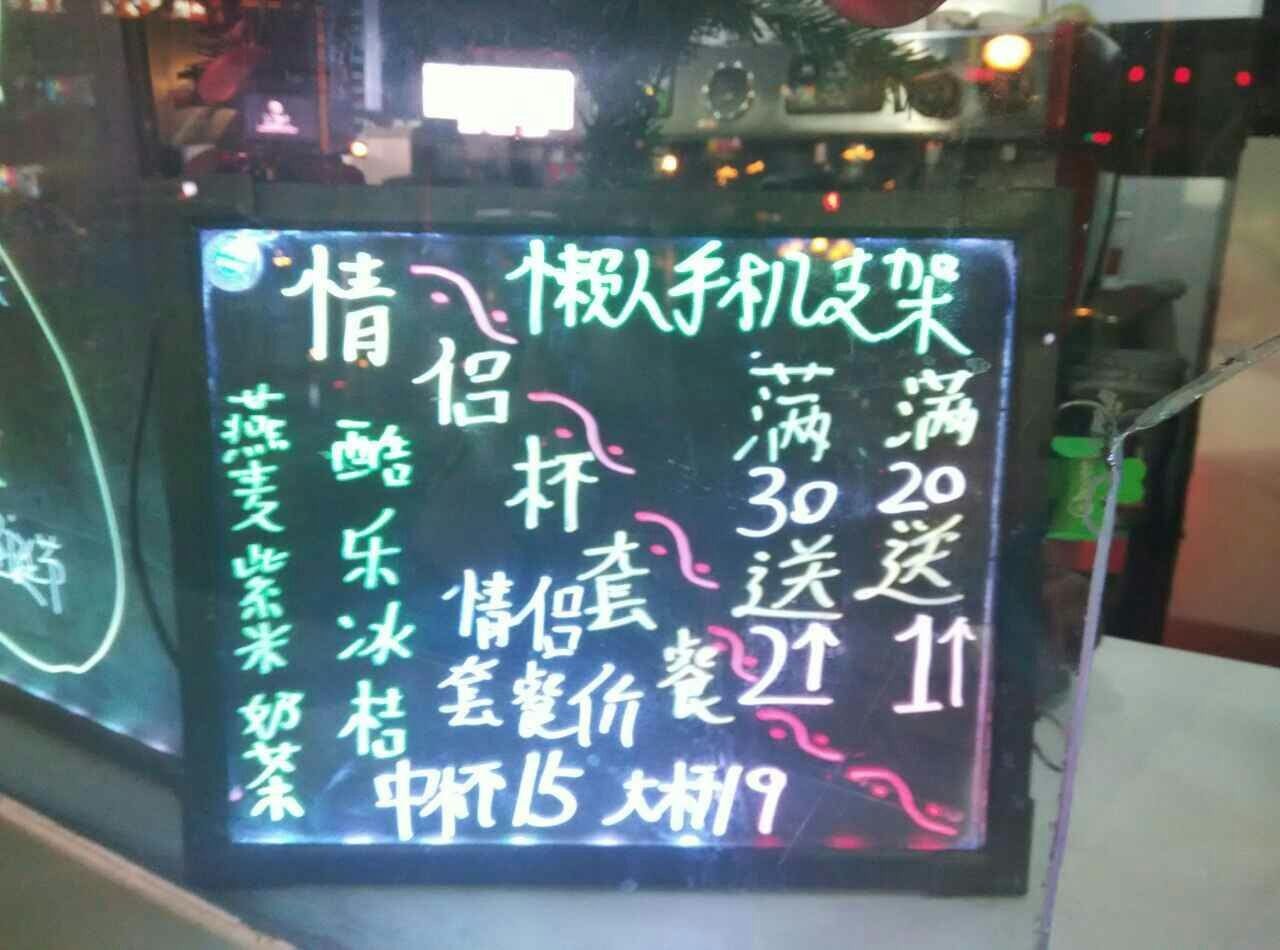 懒人手机支架
满20送1个
满30送2个
情侣杯套餐
酷乐冰桔
燕麦紫米奶茶
情侣
套餐价
中杯15 大杯19